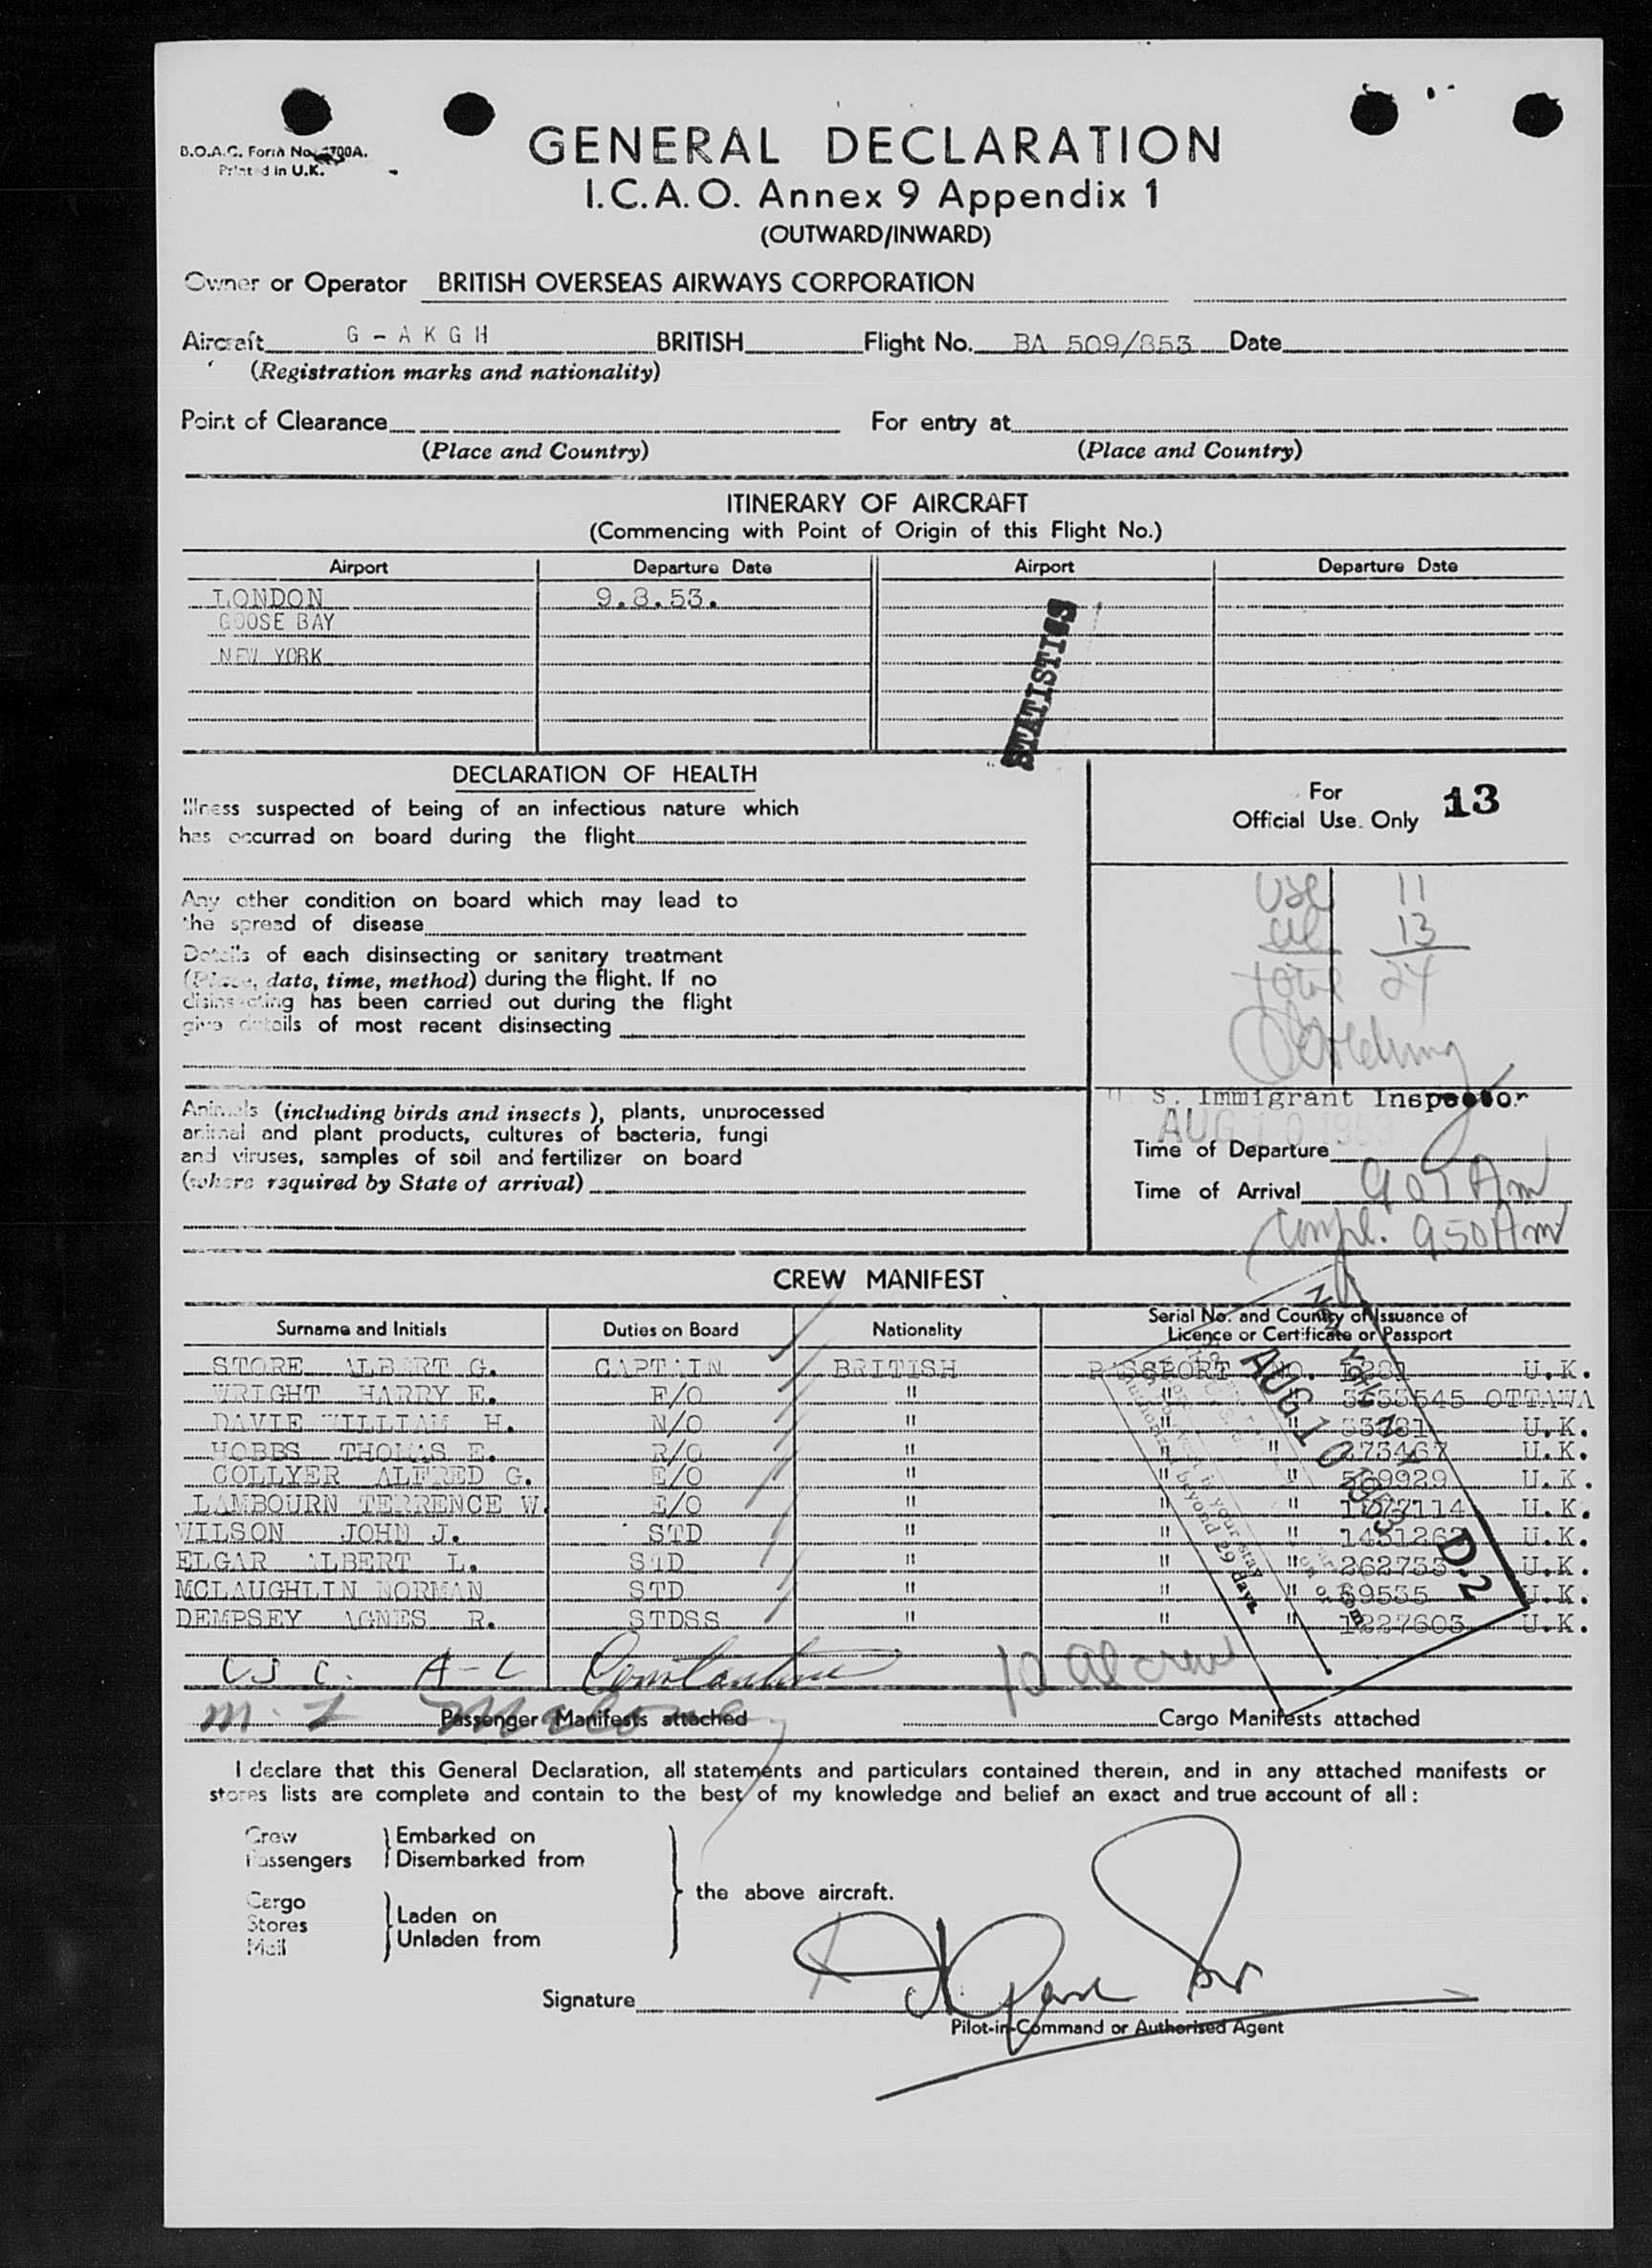 B.O.A.C. Form No. 1700A.
Printed in U.K.
GENERAL DECLARATION
I.C.A.O. Annex 9 Appendix 1
(OUTWARD/INWARD)
Owner or Operator BRITISH OVERSEAS AIRWAYS CORPORATION
Aircraft G - A K G H BRITISH Flight No. BA 509/853 Date
(Registration marks and nationality)
Point of Clearance For entry at
(Place and Country) (Place and Country)
ITINERARY OF AIRCRAFT
(Commencing with Point of Origin of this Flight No.)
Airport Departure Date Airport Departure Date
LONDON 9.8.53.
GOOSE BAY
NEW YORK
STATISTICS
DECLARATION OF HEALTH
Illness suspected of being of an infectious nature which
has occurred on board during the flight
Any other condition on board which may lead to
the spread of disease
Details of each disinsecting or sanitary treatment
(Place, date, time, method) during the flight. If no
disinsecting has been carried out during the flight
give details of most recent disinsecting
For
Official Use Only 13
USC 11
al 13
total 24
U. S. Immigrant Inspector
AUG 10 1953
Animals (including birds and insects), plants, unprocessed
animal and plant products, cultures of bacteria, fungi
and viruses, samples of soil and fertilizer on board
(where required by State of arrival)
Time of Departure
Time of Arrival 907 Am
Compl. 950 Am
CREW MANIFEST
Surname and Initials Duties on Board Nationality Serial No. and Country of Issuance of
Licence or Certificate or Passport
STORE ALBERT G. CAPTAIN BRITISH PASSPORT NO. 1281 U.K.
WRIGHT HARRY E. F/O " " 3653545 OTTAWA
DAVIE WILLIAM H. N/O " " " 33781 U.K.
HOBBS THOMAS E. R/O " " " 273467 U.K.
COLLYER ALFRED G. E/O " " " 569929 U.K.
LAMBOURN TERRENCE W. E/O " " " 1077114 U.K.
WILSON JOHN J. STD " " " 1431262 U.K.
ELGAR ALBERT L. STD " " " 262733 U.K.
MCLAUGHLIN NORMAN STD " " " 69535 U.K.
DEMPSEY AGNES R. STDSS " " " 1227603 U.K.
New York N.Y.
AUG 10 1953
D.2
beyond 29 days
USC. A-L Constantine 10 al crew
M. L Malone
Passenger Manifests attached Cargo Manifests attached
I declare that this General Declaration, all statements and particulars contained therein, and in any attached manifests or
stores lists are complete and contain to the best of my knowledge and belief an exact and true account of all :
Crew Embarked on
Passengers Disembarked from
the above aircraft.
Cargo
Stores Laden on
Mail Unladen from
Signature
Pilot-in-Command or Authorised Agent